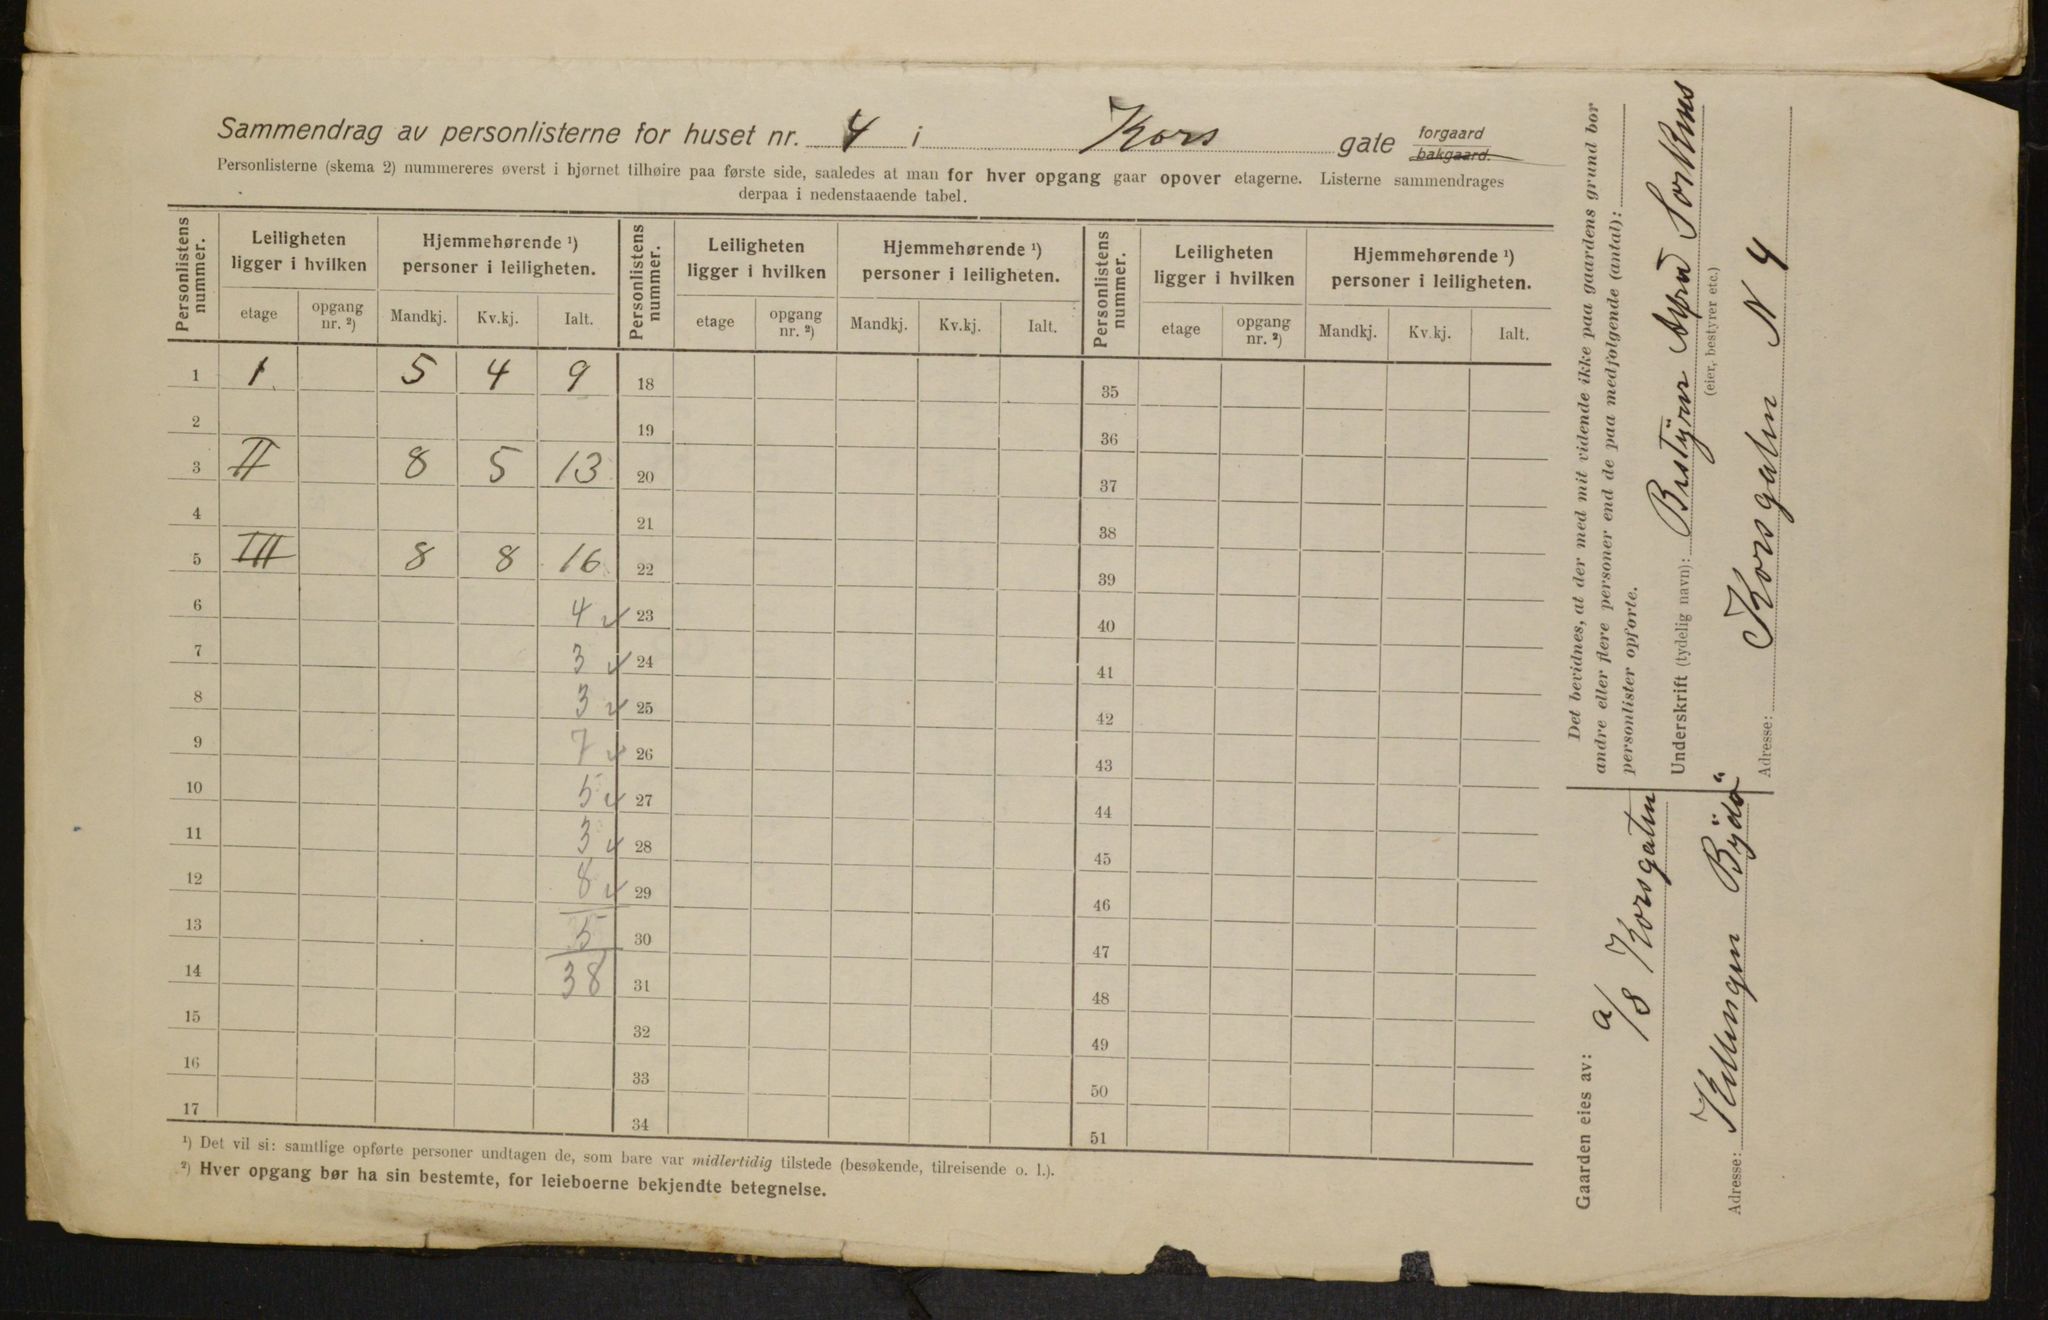 Sammendrag av personlisterne for huset nr. 4 i Kors gate forgaard bakgaard.
Personlisterne (skema 2) nummereres øverst i hjørnet tilhøire paa første side, saaledes at man for hver opgang gaar opover etagerne. Listerne sammendrages
derpaa i nedenstaaende tabel.
Personlistens nummer. Leiligheten ligger i hvilken Hjemmehørende ¹) personer i leiligheten. Personlistens nummer. Leiligheten ligger i hvilken Hjemmehørende ¹) personer i leiligheten. Personlistens nummer. Leiligheten ligger i hvilken Hjemmehørende ¹) personer i leiligheten.
etage opgang nr. ²) Mandkj. Kv.kj. Ialt. etage opgang nr. ²) Mandkj. Kv.kj. Ialt. etage opgang nr. ²) Mandkj. Kv.kj. Ialt.
1 1 5 4 9 18 35
2 19 36
3 II 8 5 13 20 37
4 21 38
5 III 8 8 16 22 39
6 4 23 40
7 3 24 41
8 3 25 42
9 7 26 43
10 5 27 44
11 3 28 45
12 8 29 46
13 5 30 47
14 38 31 48
15 32 49
16 33 50
17 34 51
¹) Det vil si: samtlige opførte personer undtagen de, som bare var midlertidig tilstede (besøkende, tilreisende o. l.).
²) Hver opgang bør ha sin bestemte, for leieboerne bekjendte betegnelse.
Det bevidnes, at der med mit vidende ikke paa gaardens grund bor
andre eller flere personer end de paa medfølgende (antal):
personlister opførte.
Underskrift (tydelig navn): Bestyrer
(eier, bestyrer etc.)
Adresse: Korsgaten N 4
Gaarden eies av: a/s Korsgaten
Adresse: Killingen Bydö